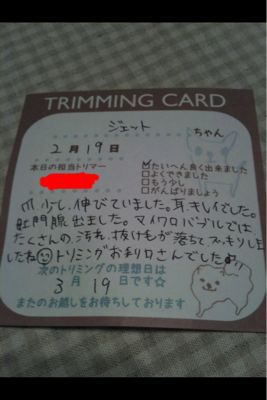 TRIMMING CARD
ジェット ちゃん
2月19日
本日の担当トリマー
☑たいへん良く出来ました
□よくできました
□もう少し
□がんばりましょう
爪少し、伸びていました。耳、キレイでした。
肛門腺出ました。マイクロバブルでは、
たくさんの、汚れ、抜けもが落ちて、スッキリし
したね☺トリミングお利口さんでした♪
次のトリミングの理想日は
3月19日です☆
またのお越しをお待ちしております